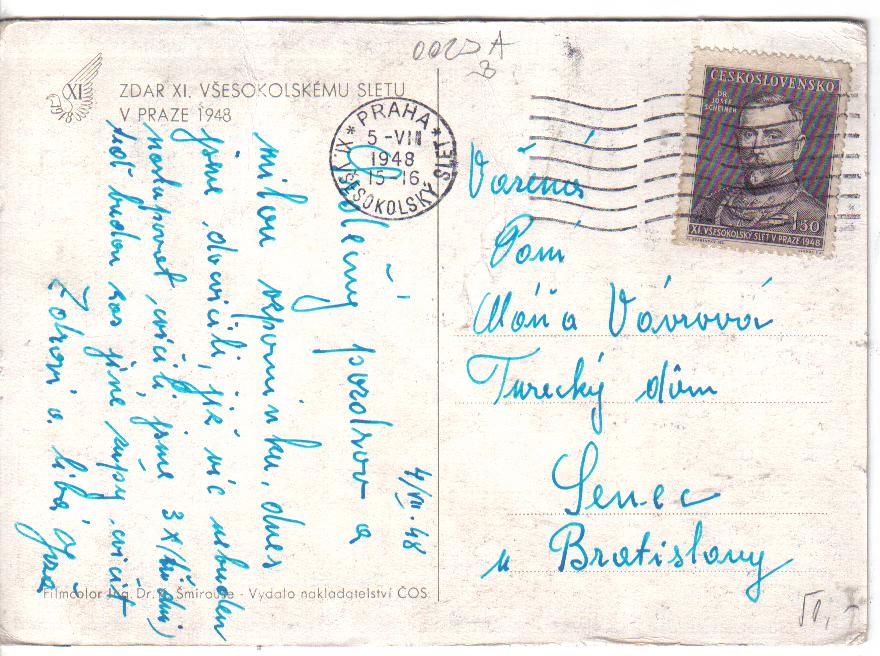 0025A
B
XI
1948
ZDAR XI. VŠESOKOLSKÉMU SLETU
V PRAZE 1948
PRAHA
5-VII
1948
15-16
XI. VŠESOKOLSKÝ SLET
ČESKOSLOVENSKO
DR
JOSEF
SCHEINER
1.50
XI. VŠESOKOLSKÝ SLET V PRAZE 1948
4/VII. 48
pozdrav a
milou vzpomínku, dnes
jsme docvičili, již víc nebudem
nastupovat, cvičili jsme 3 x
teď budou zas jiné župy cvičit
Zdraví a líbá
Vážená
Paní
Máňa Vávrová
Turecký dôm
Senec
u Bratislavy
Filmcolor Ing. Dr. Šmirouse - Vydalo nakladatelství ČOS
50,-